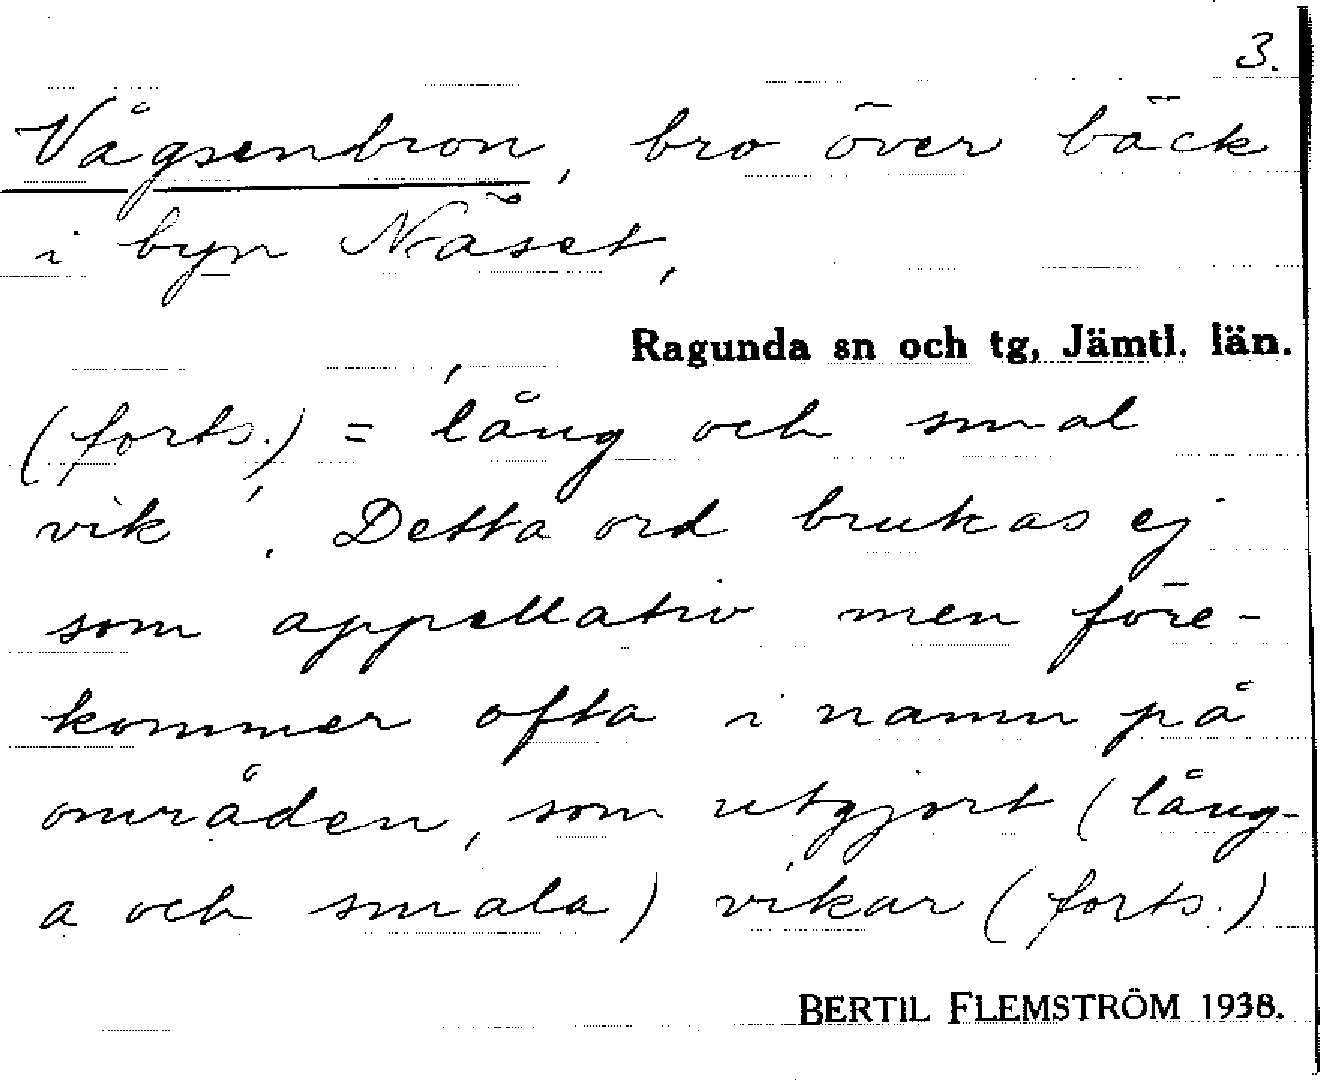 3.
Vågsenbron, bro över bäck
i byn Näset,
Ragunda sn och tg, Jämtl. län.
(forts.) = 'lång och smal
vik'. Detta ord brukas ej
som appellativ men före-
kommer ofta i namn på
områden, som utgjort (lång-
a och smala) vikar (forts.)
BERTIL FLEMSTRÖM 1938.